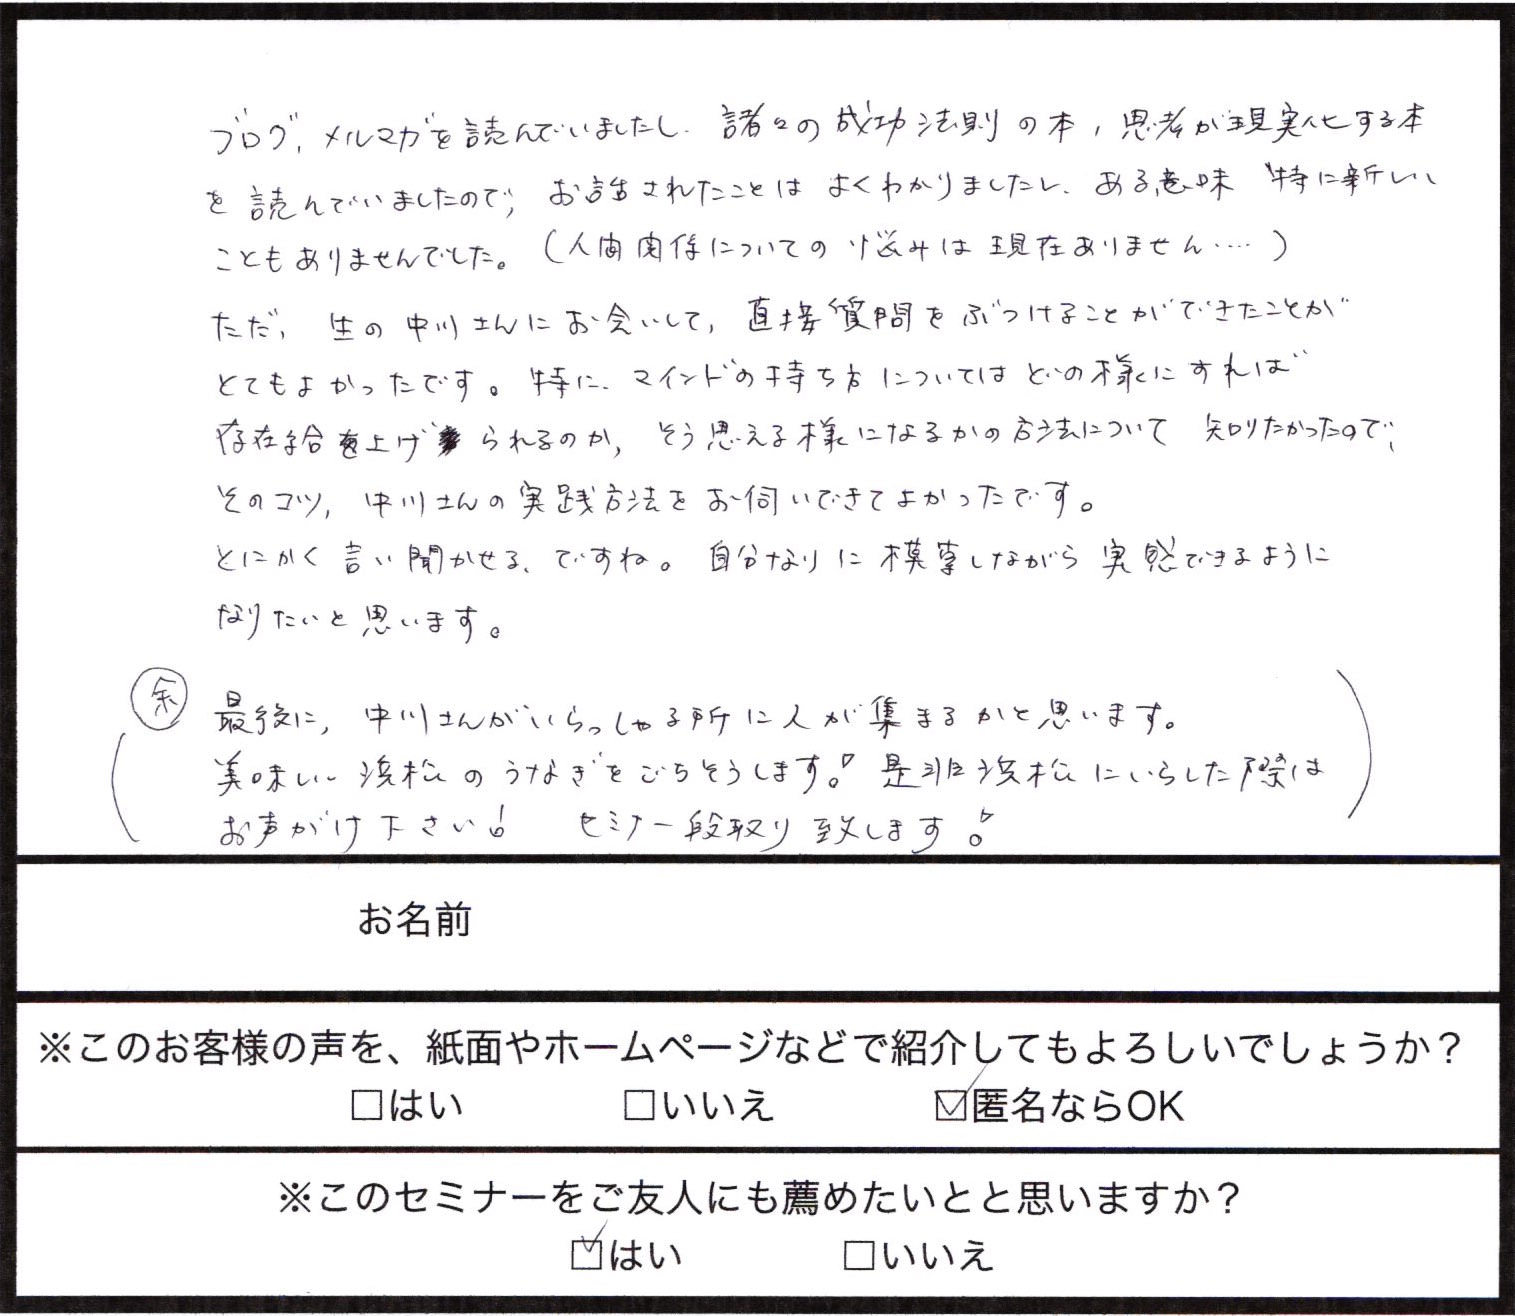 ブログ、メルマガを読んでいましたし、諸々の成功法則の本、思考が現実化する本
を読んでいましたので、お話されたことはよくわかりましたし、ある意味 特に新しい
こともありませんでした。(人間関係についての悩みは現在ありません‥‥)
ただ、生の中川さんにお会いして、直接質問をぶつけることができたことが
とてもよかったです。特に、マインドの持ち方についてはどの様にすれば
存在給を上げられるのか、そう思える様になるかの方法について 知りたかったので、
そのコツ、中川さんの実践方法をお伺いできてよかったです。
とにかく言い聞かせる、ですね。自分なりに模索しながら実感できるように
なりたいと思います。
余 最後に、中川さんがいらっしゃる所に人が集まるかと思います。
(美味しい浜松のうなぎをごちそうします!是非浜松にいらした際は
お声がけ下さい! セミナー段取り致します!)
お名前
※このお客様の声を、紙面やホームページなどで紹介してもよろしいでしょうか?
□はい □いいえ ☑匿名ならOK
※このセミナーをご友人にも薦めたいとと思いますか?
☑はい □いいえ